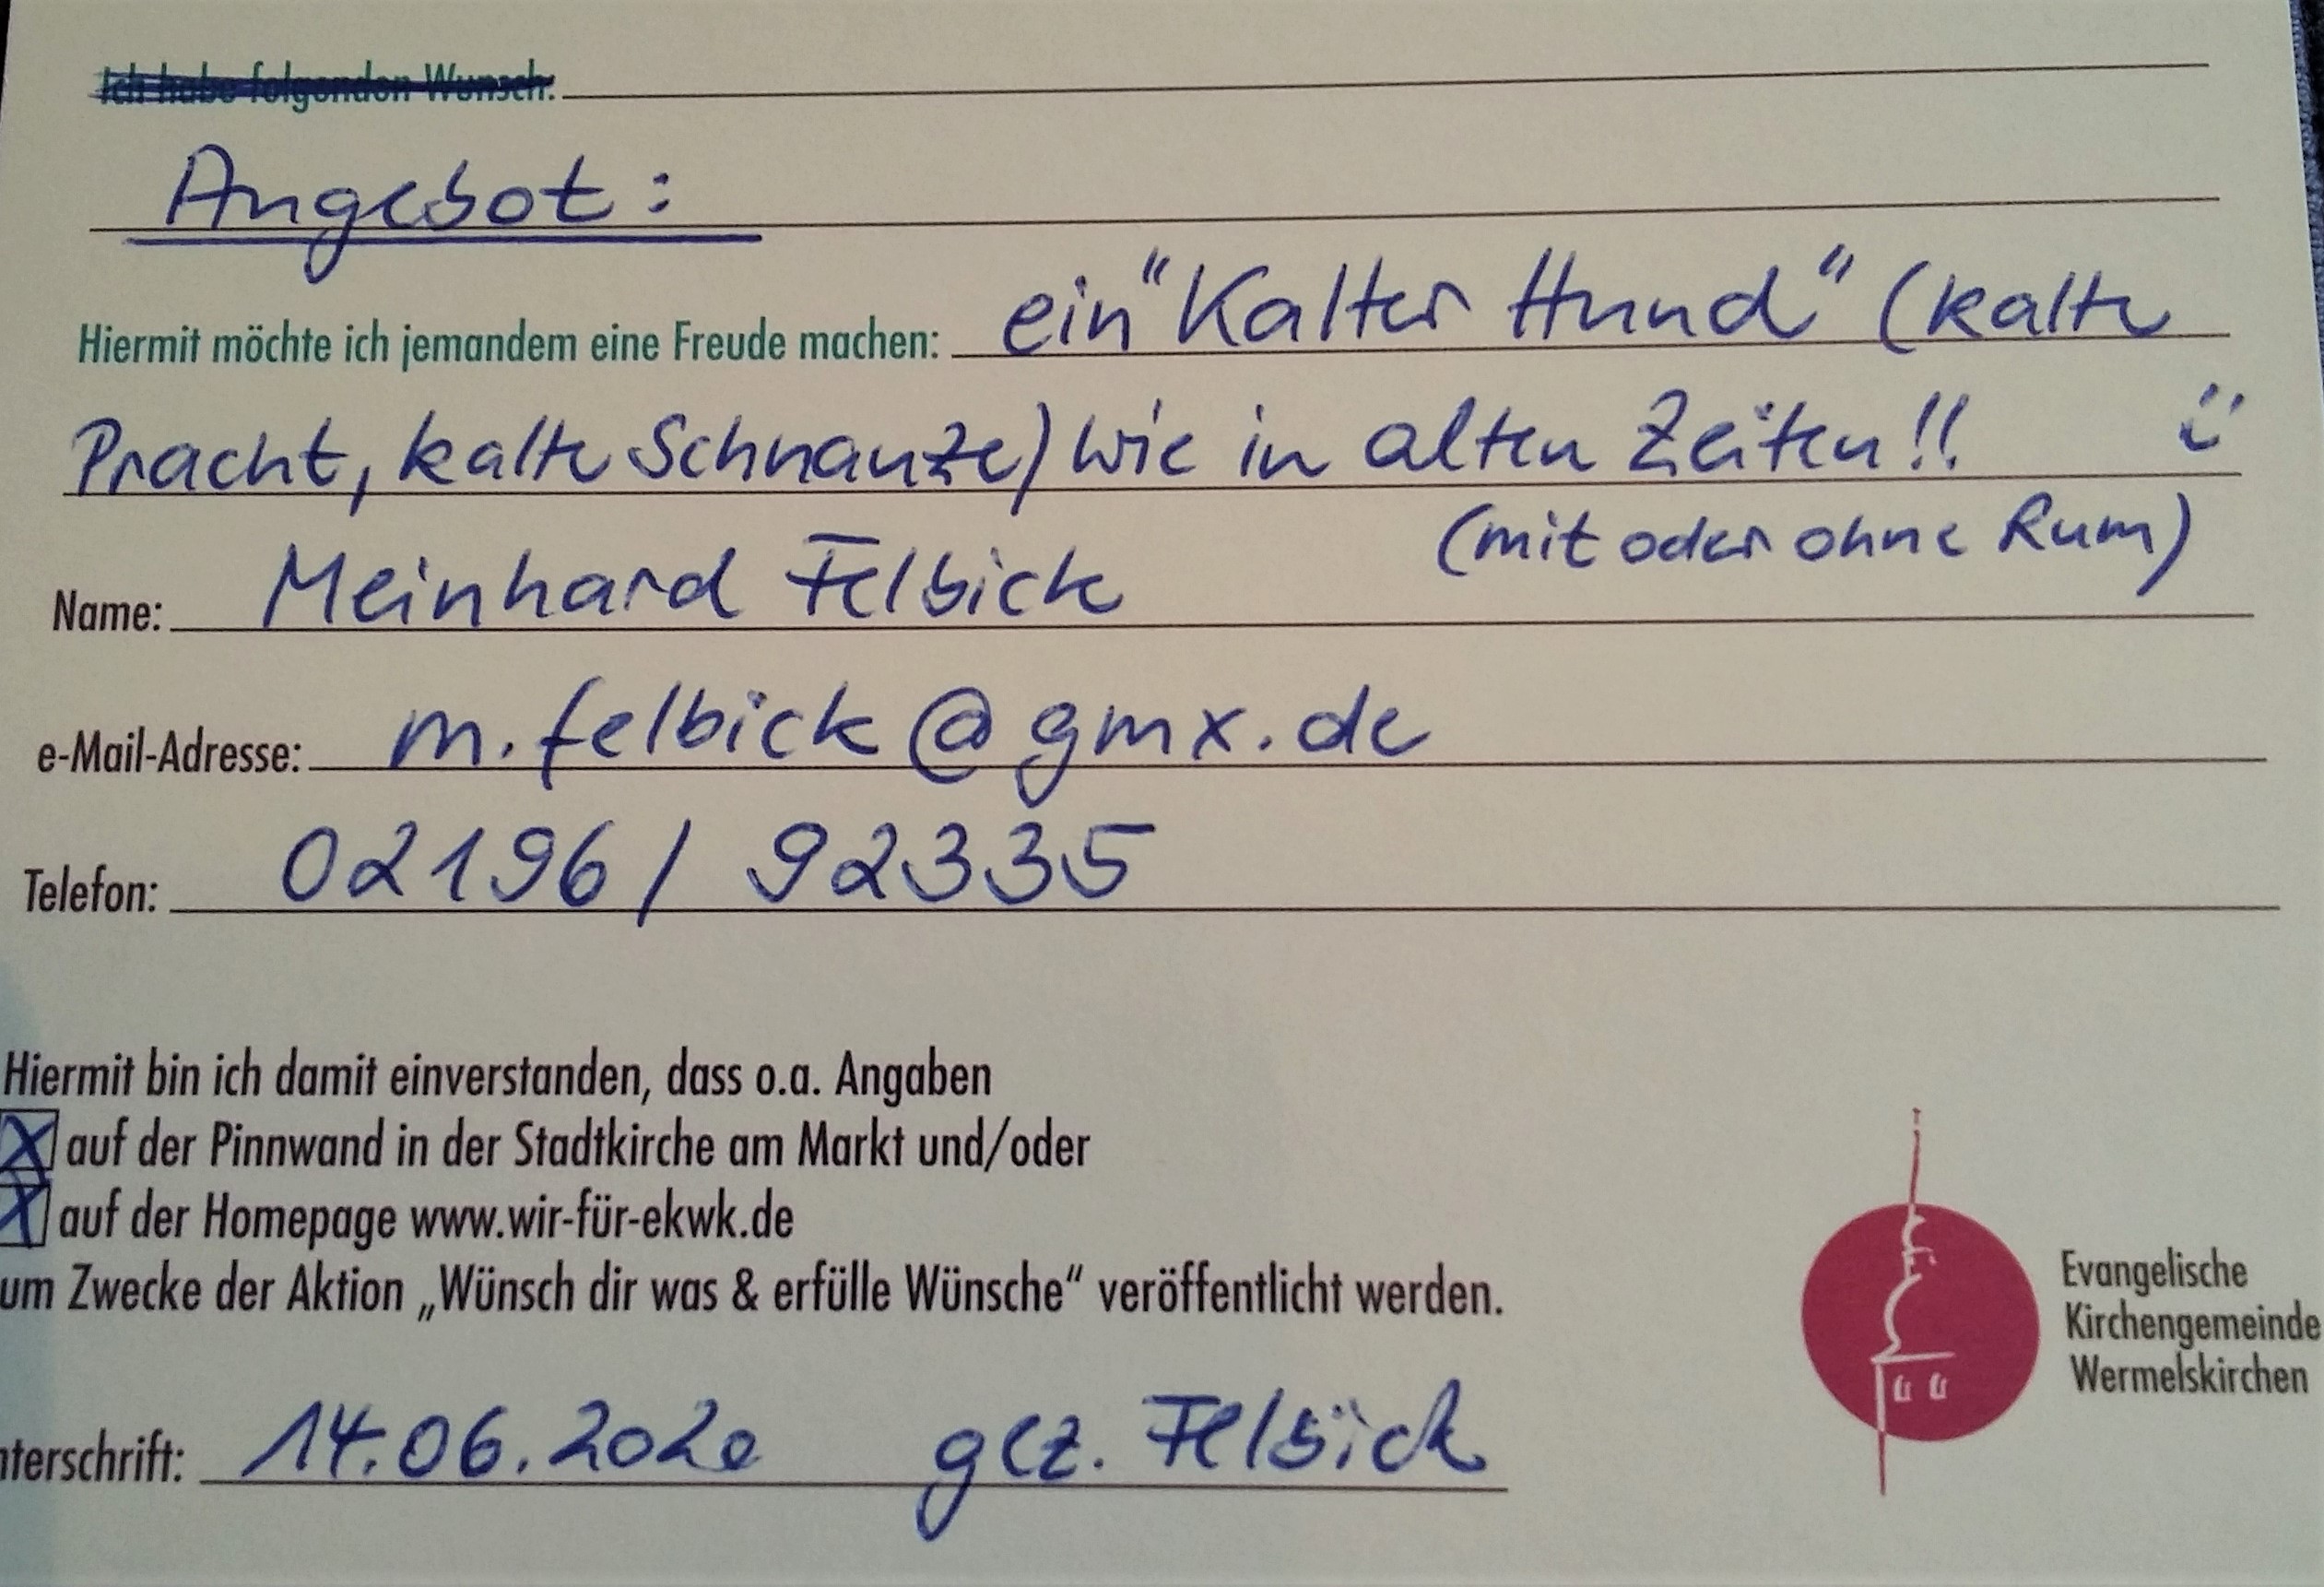 Ich habe folgenden Wunsch:
Angebot:
Hiermit möchte ich jemandem eine Freude machen: ein "Kalter Hund" (kalte
Pracht, kalte Schnauze) wie in alten Zeiten!! ü
(mit oder ohne Rum)
Name: Meinhard Felbick
e-Mail-Adresse: m.felbick@gmx.de
Telefon: 02196 / 92335
Hiermit bin ich damit einverstanden, dass o.a. Angaben
X auf der Pinnwand in der Stadtkirche am Markt und/oder
X auf der Homepage www.wir-für-ekwk.de
um Zwecke der Aktion „Wünsch dir was & erfülle Wünsche“ veröffentlicht werden.
Evangelische
Kirchengemeinde
Wermelskirchen
nterschrift: 14.06.2020 gez. Felbick